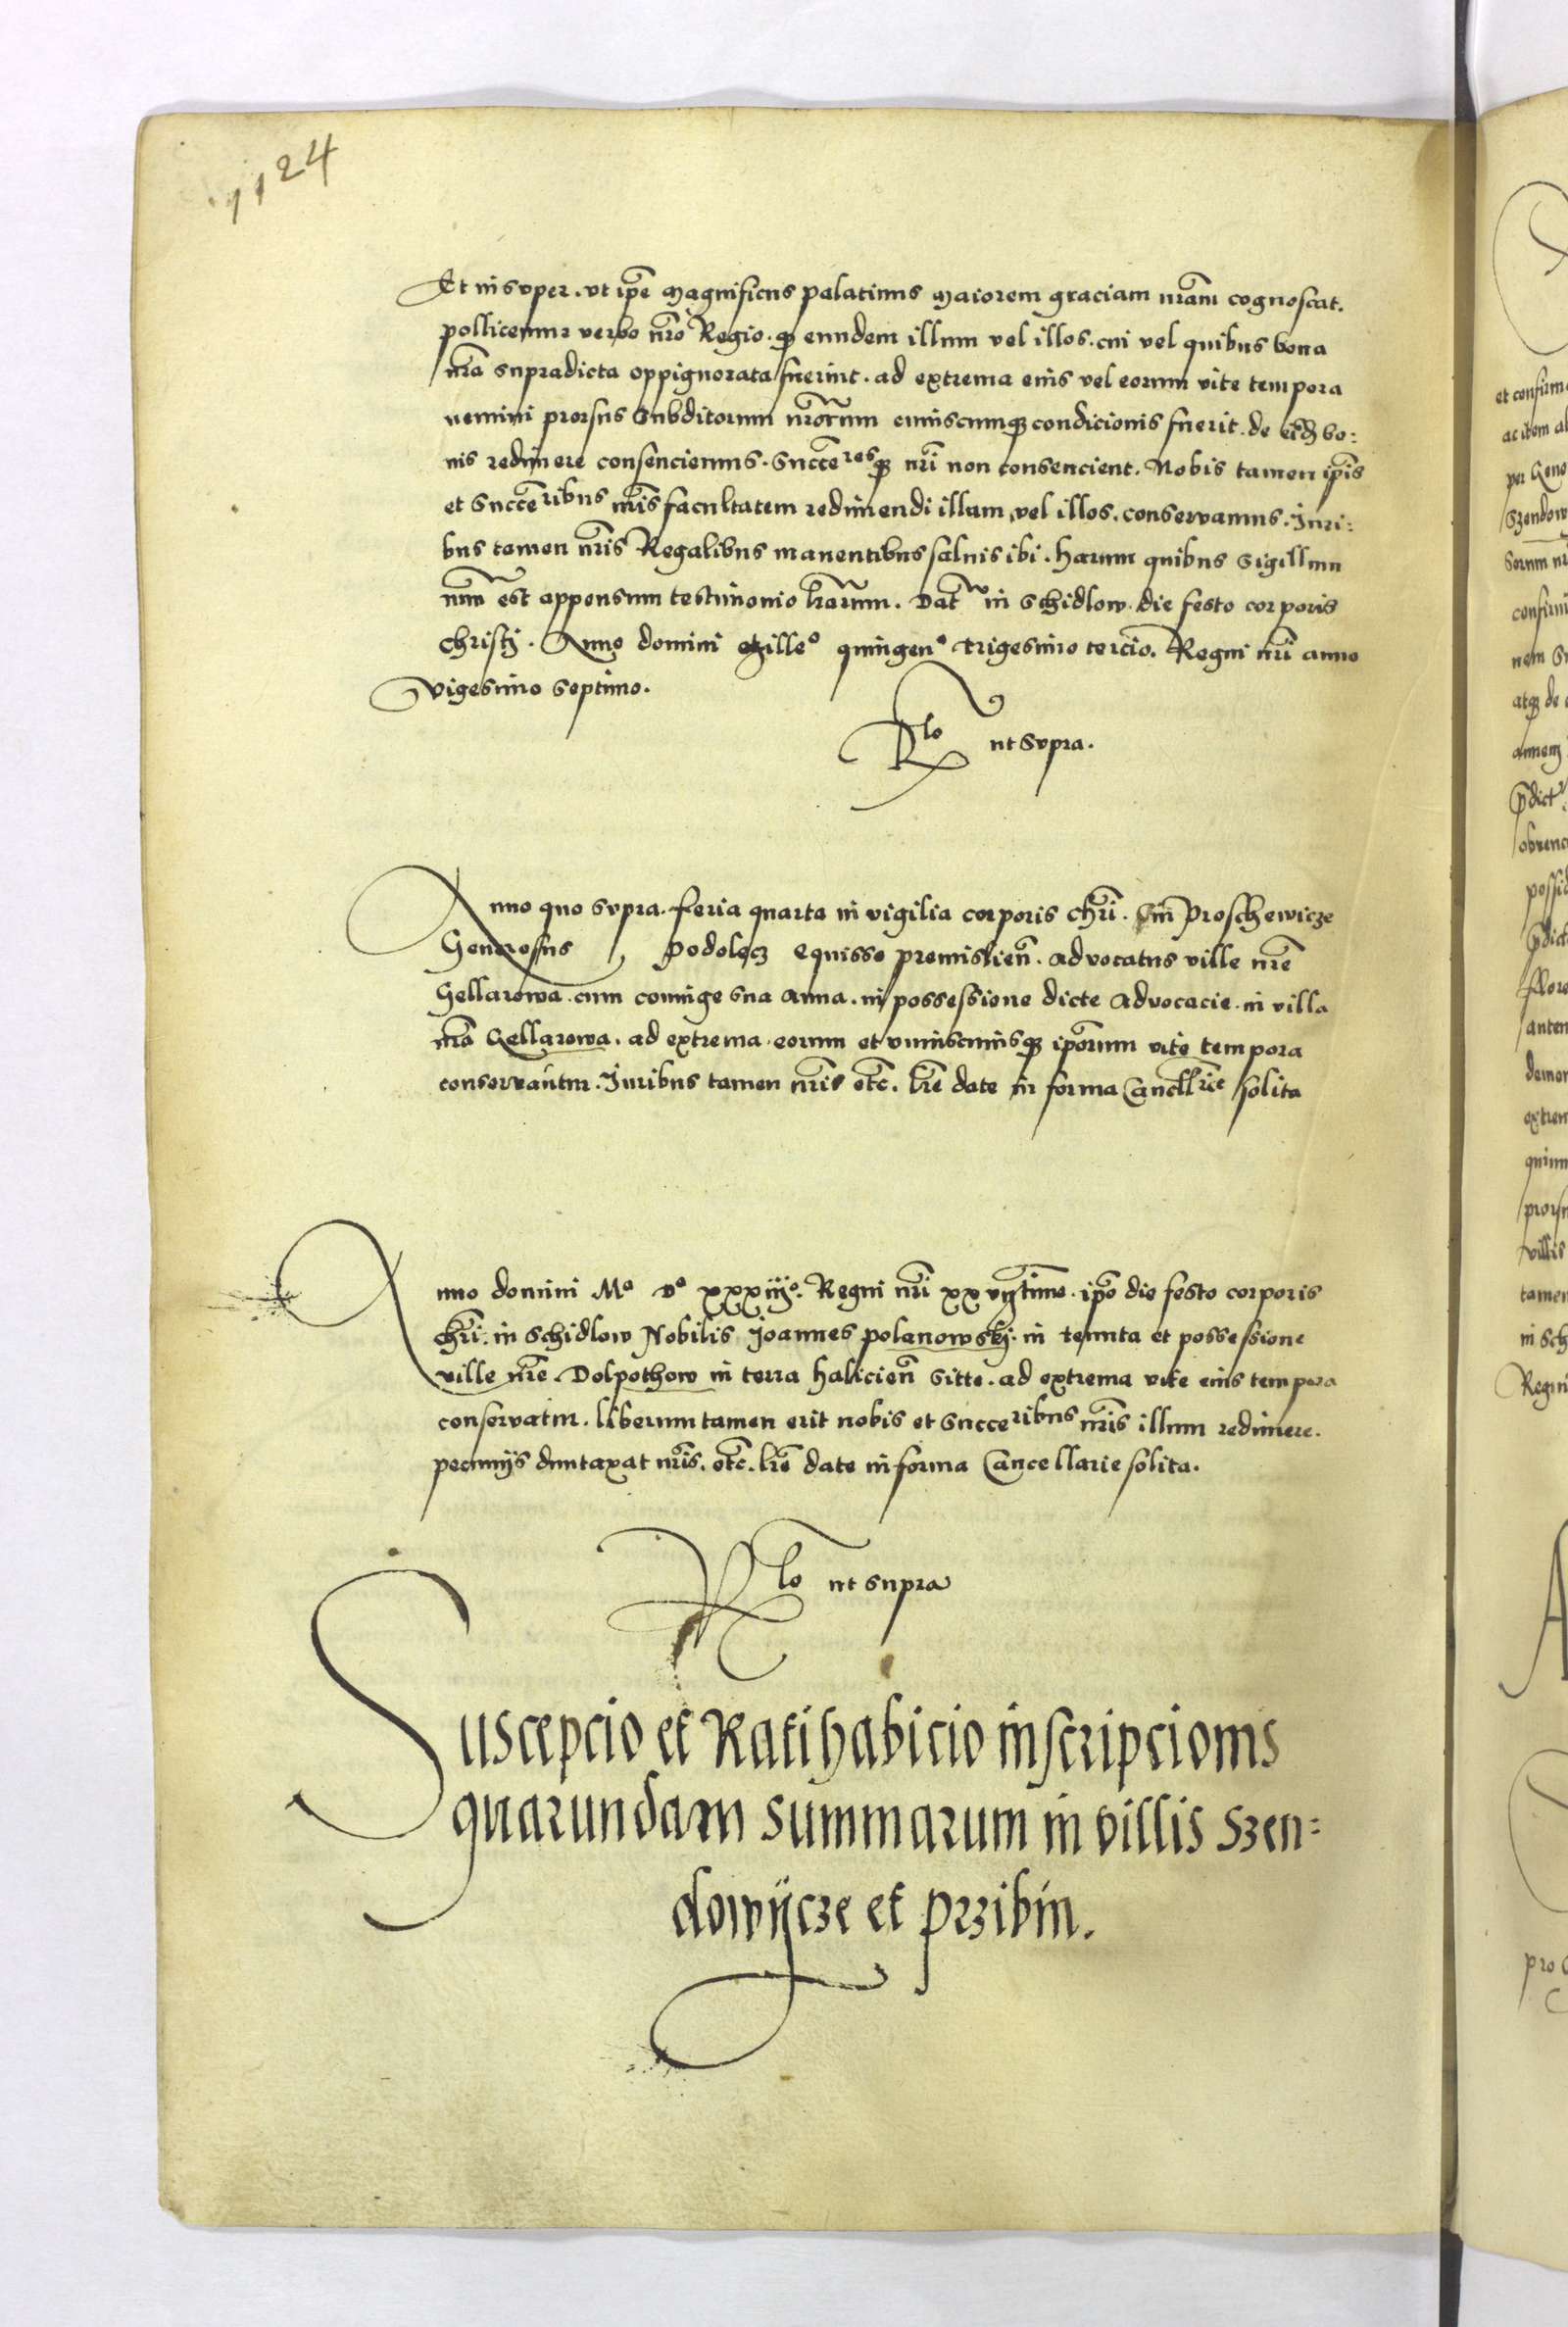 1124
Et insuper. ut ip̃e Magnificus palatinus Maiorem graciam nr̃am cognoscat.
pollicemur verbo nr̃o Regio. ꝙ eundem illum vel illos. cui vel quibus bona
nr̃a supradicta oppignorata fuerint. ad extrema eius vel eorum vite tempora
nemini prorsus Subditorum nr̃orum cuiuscumqꝫ condicionis fuerit. de eisdꝫ bo:
nis redimere consenciemus. Succẽresqꝫ nr̃i non consencient. Nobis tamen ip̃is
et Succẽribus nr̃is facultatem redimendi illum vel illos. conservamus. Juri:
bus tamen nr̃is Regalibus manentibus salvis ibi. harum quibus Sigillum
nr̃um est appensum testimonio lr̃arum. Dat̃ in Schidlow. die festo corporis
Christi. Anno domini Milleº quingenº trigesimo tercio. Regni nr̃i anno
vigesimo septimo.
Rlo ut supra.
Anno quo supra. feria quarta in vigilia corporis chr̃i. In Proschewicze
Generosus Podolecz Equisso premislien̄. advocatus ville nr̃e
Gellarowa. cum coniuge sua Anna. in possessione dicte Advocacie. in villa
nr̃a Gellarowa. ad extrema eorum et uniuscuiusqꝫ ip̃orum vite tempora
conservantur. Juribus tamen nr̃is etc̃. lr̃e date in forma Cancllrie solita
Anno domini Mº vº xxxiijº. Regni nr̃i xxvijtimo. ip̃o die festo corporis
chr̃i. in Schidlow Nobilis Joannes polanowskj. in tenuta et possessione
ville nr̃e. Dolpothow in terra halicien̄ sitte. ad extrema vite eius tempora
conservatur. liberum tamen erit nobis et Succeribus nr̃is illum redimere.
pecuniis duntaxat nr̃is. etc̃. lr̃e date in forma Cancellarie solita.
Rlo ut supra
Suscepcio et Ratihabicio inscripcionis
quarundam summarum in villis Szen:
dowijcze et przibin.